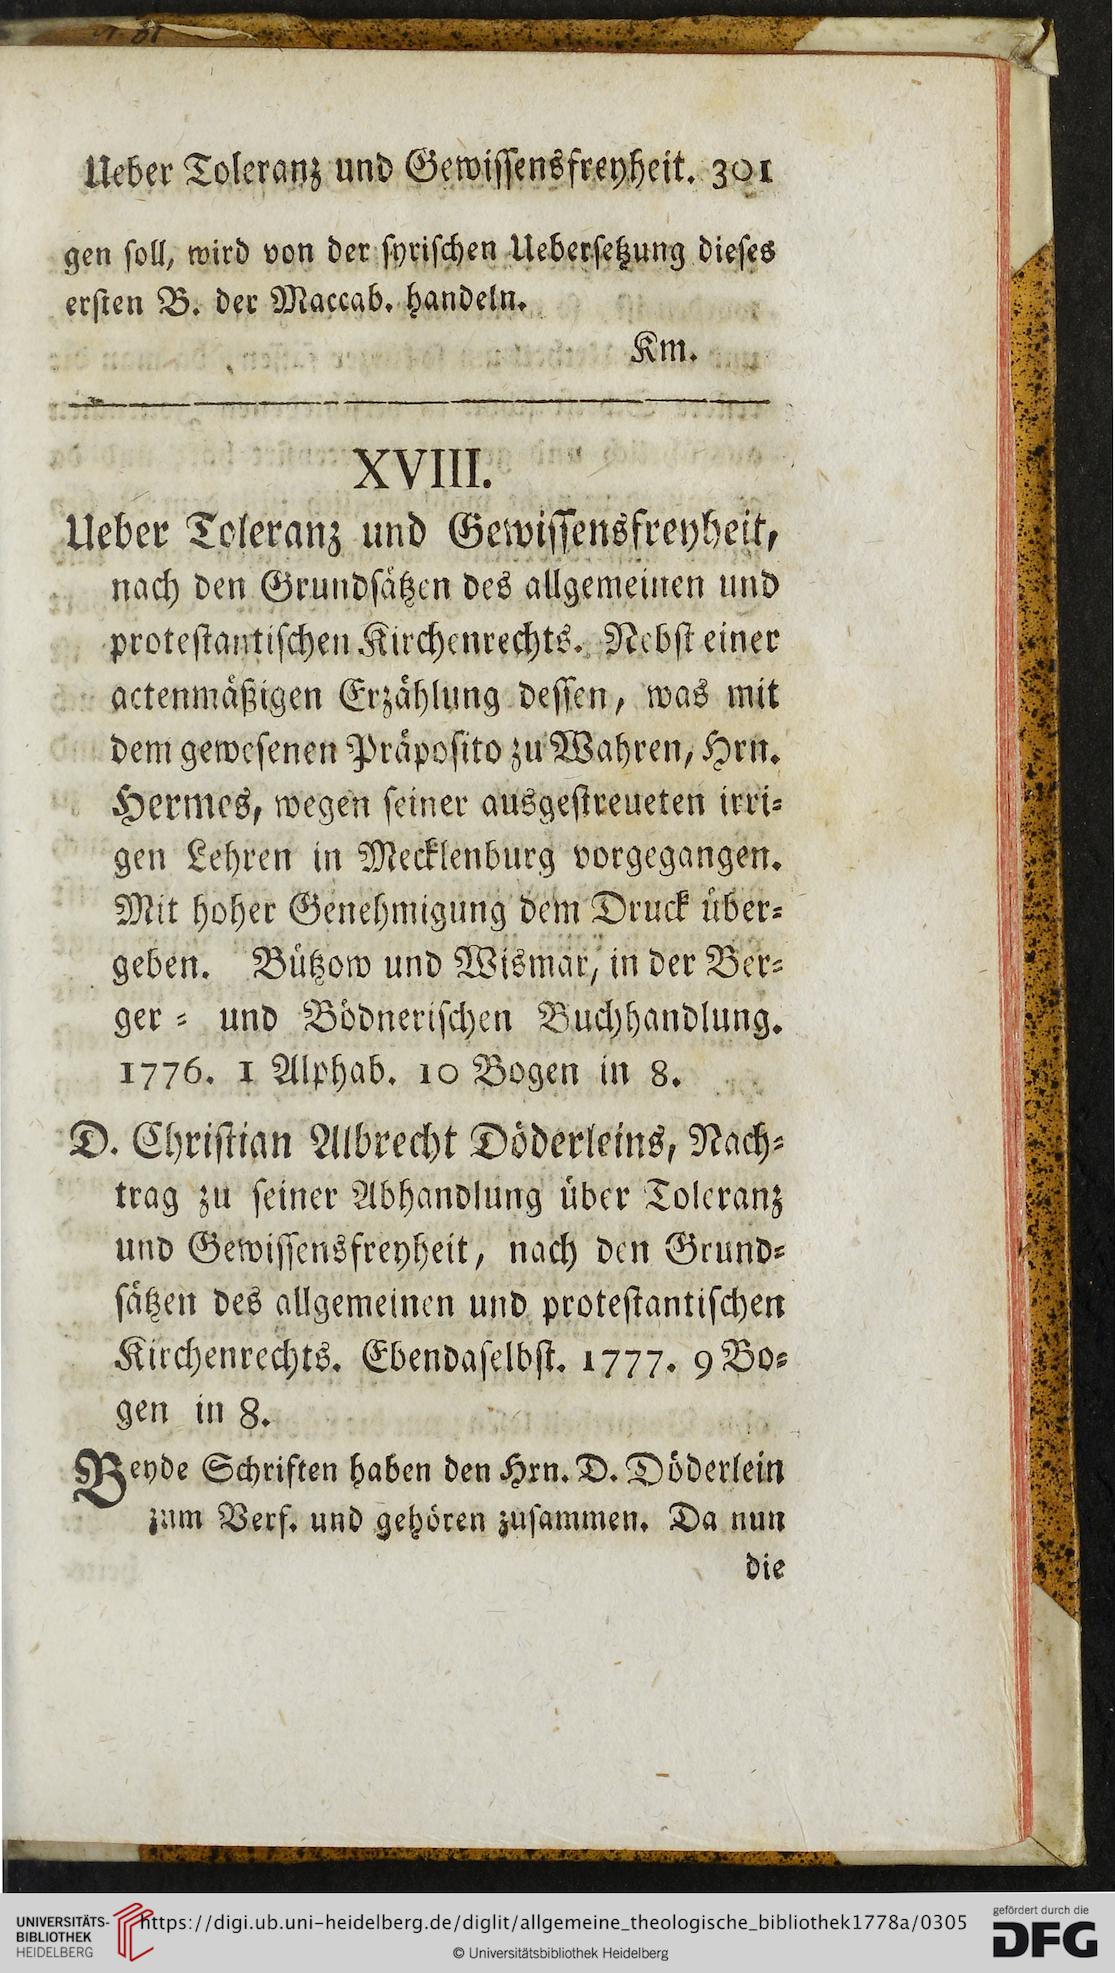 Ueber Toleranz und Gewissensfreyheit. 301
gen soll, wird von der syrischen Uebersetzung dieses
ersten B. der Maccab. handeln.
Km.
XVIII.
Ueber Toleranz und Gewissensfreyheit,
nach den Grundsätzen des allgemeinen und
protestantischen Kirchenrechts. Nebst einer
actenmäßigen Erzählung dessen, was mit
dem gewesenen Präposito zu Wahren, Hrn.
Hermes, wegen seiner ausgestreueten irri-
gen Lehren in Mecklenburg vorgegangen.
Mit hoher Genehmigung dem Druck über-
geben. Bützow und Wismar, in der Ber-
ger- und Bödnerischen Buchhandlung.
1776. 1 Alphab. 10 Bogen in 8.
D. Christian Albrecht Döderleins, Nach-
trag zu seiner Abhandlung über Toleranz
und Gewissensfreyheit, nach den Grund-
sätzen des allgemeinen und protestantischen
Kirchenrechts. Ebendaselbst. 1777. 9 Bo-
gen in 8.
Beyde Schriften haben den Hrn. D. Döderlein
zum Verf. und gehören zusammen. Da nun
die
UNIVERSITÄTS-
BIBLIOTHEK
HEIDELBERG
https://digi.ub.uni-heidelberg.de/diglit/allgemeine_theologische_bibliothek1778a/0305
© Universitätsbibliothek Heidelberg
gefördert durch die
DFG